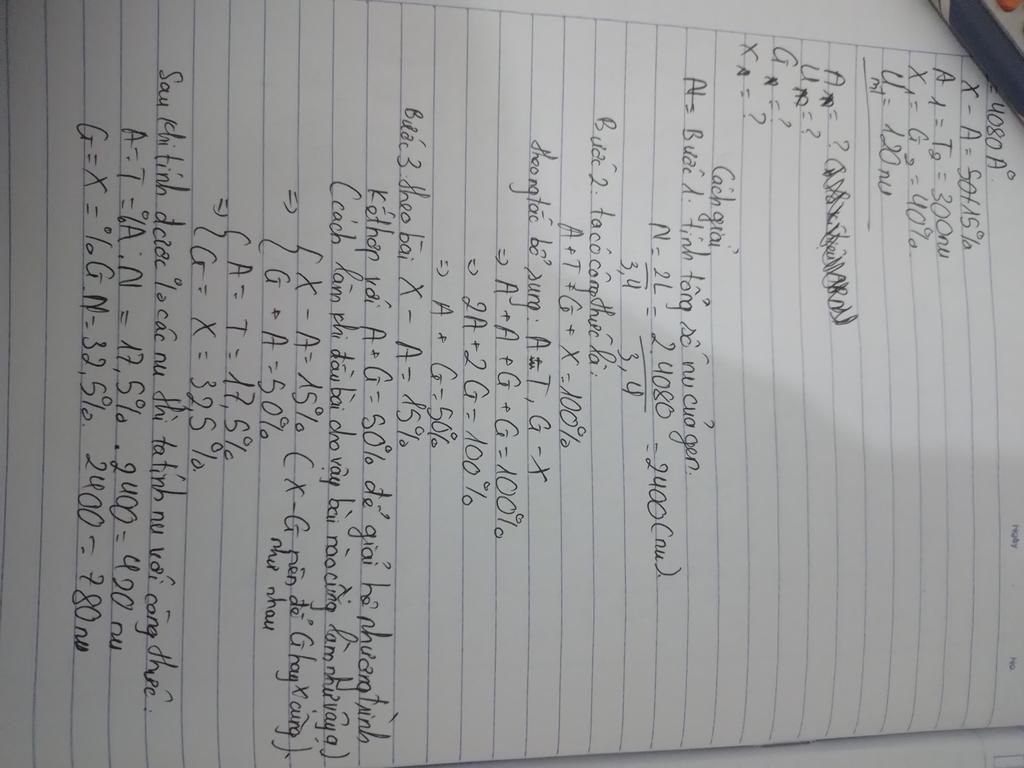 = 4080A°
X - A = 15%
A1 = T2 = 300nu
X1 = G2 = 40%
Um = 120nu
Am = ?
Um = ?
Gm = ?
Xm = ?
Cách giải
Bước 1. tính tổng số nu của gen.
N = 2L / 3,4 = 2.4080 / 3,4 = 2400 (nu)
Bước 2. ta có công thức là.
A + T + G + X = 100%
theo ng tắc bổ sung. A = T, G - X
=> A + A + G + G = 100%
=> 2A + 2G = 100%
=> A + G = 50%
Bước 3. theo bài X - A = 15%
Kết hợp với A + G = 50% để giải hệ phương trình
(cách làm khi đầu bài cho vậy bài nào cũng làm như vậy ạ)
=> { X - A = 15% (X - G nên để G hay X cũng)
{ G + A = 50% như nhau
=> { A = T = 17,5%
{ G = X = 32,5%
Sau khi tính được % các nu thì ta tính nu với công thức.
A = T = %A . N = 17,5% . 2400 = 420 nu
G = X = %G . N = 32,5% . 2400 = 780 nu
NGÀY
NO.